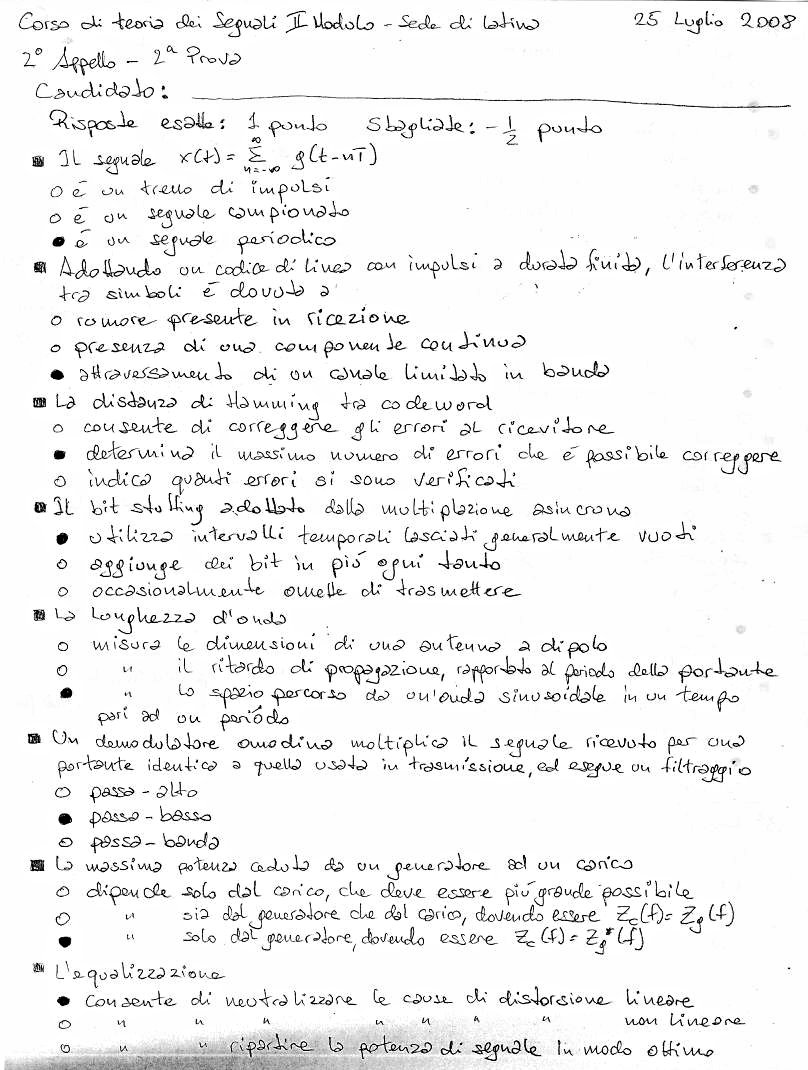 Corso di teoria dei Segnali II Modulo - Sede di Latina 25 Luglio 2008
2° Appello - 2ª Prova
Candidato:
Risposte esatte: 1 punto Sbagliate: -1/2 punto
Il segnale x(t) = ∑_{n=-∞}^{∞} g(t-nT)
o è un treno di impulsi
o è un segnale campionato
● è un segnale periodico
Adottando un codice di linea con impulsi a durata finita, l'interferenza
tra simboli è dovuta a
o rumore presente in ricezione
o presenza di una componente continua
● attraversamento di un canale limitato in banda
La distanza di Hamming tra codeword
o consente di correggere gli errori al ricevitore
● determina il massimo numero di errori che è possibile correggere
o indica quanti errori si sono verificati
Il bit stuffing adottato dalla multiplazione asincrona
● utilizza intervalli temporali lasciati generalmente vuoti
o aggiunge dei bit in più ogni tanto
o occasionalmente omette di trasmettere
La lunghezza d'onda
o misura le dimensioni di una antenna a dipolo
o " il ritardo di propagazione, rapportato al periodo della portante
● " lo spazio percorso da un'onda sinusoidale in un tempo
pari ad un periodo
Un demodulatore omodina moltiplica il segnale ricevuto per una
portante identica a quella usata in trasmissione, ed esegue un filtraggio
o passa-alto
● passa-basso
o passa-banda
La massima potenza ceduta da un generatore ad un carico
o dipende solo dal carico, che deve essere più grande possibile
o " sia dal generatore che dal carico, dovendo essere Zc(f)=Zg(f)
● " solo dal generatore, dovendo essere Zc(f)=Zg*(f)
L'equalizzazione
● Consente di neutralizzare le cause di distorsione lineare
o " " " " " " " non lineare
o " " ripartire la potenza di segnale in modo ottimo